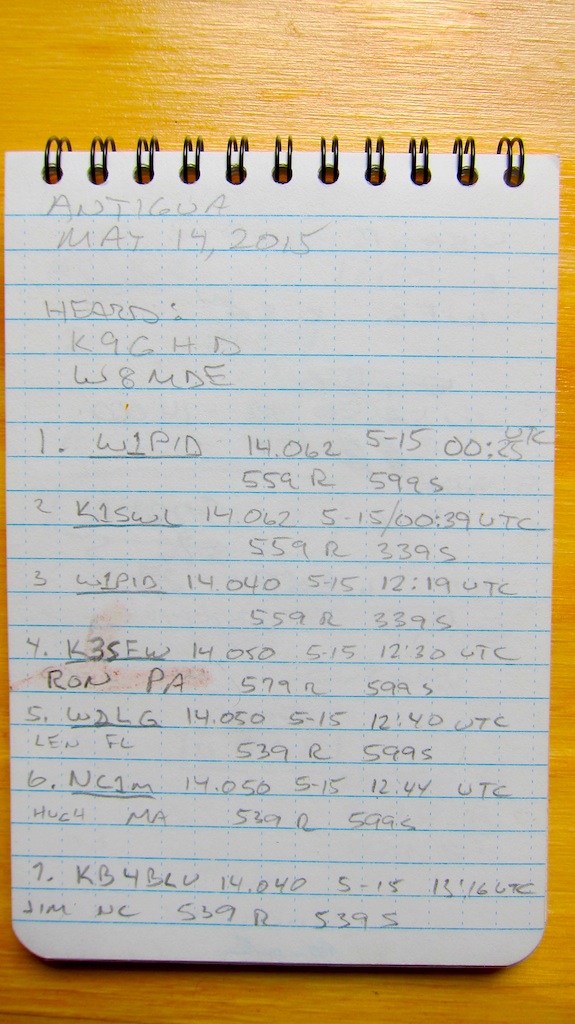 ANTIGUA
MAY 14, 2015
HEARD:
K9GHD
W8MDE
1. W1PID 14.062 5-15 00:25 UTC
559 R 599 S
2 K1SWL 14.062 5-15/00:39 UTC
559 R 339 S
3 W1PID 14.040 5-15 12:19 UTC
559 R 339 S
4. K3SEW 14.050 5-15 12:30 UTC
RON PA 579 R 599 S
5. W2LG 14.050 5-15 12:40 UTC
LEN FL 539 R 599 S
6. NC1M 14.050 5-15 12:44 UTC
HUGH MA 539 R 599 S
7. KB4BLU 14.040 5-15 13:16 UTC
JIM NC 539 R 539 S